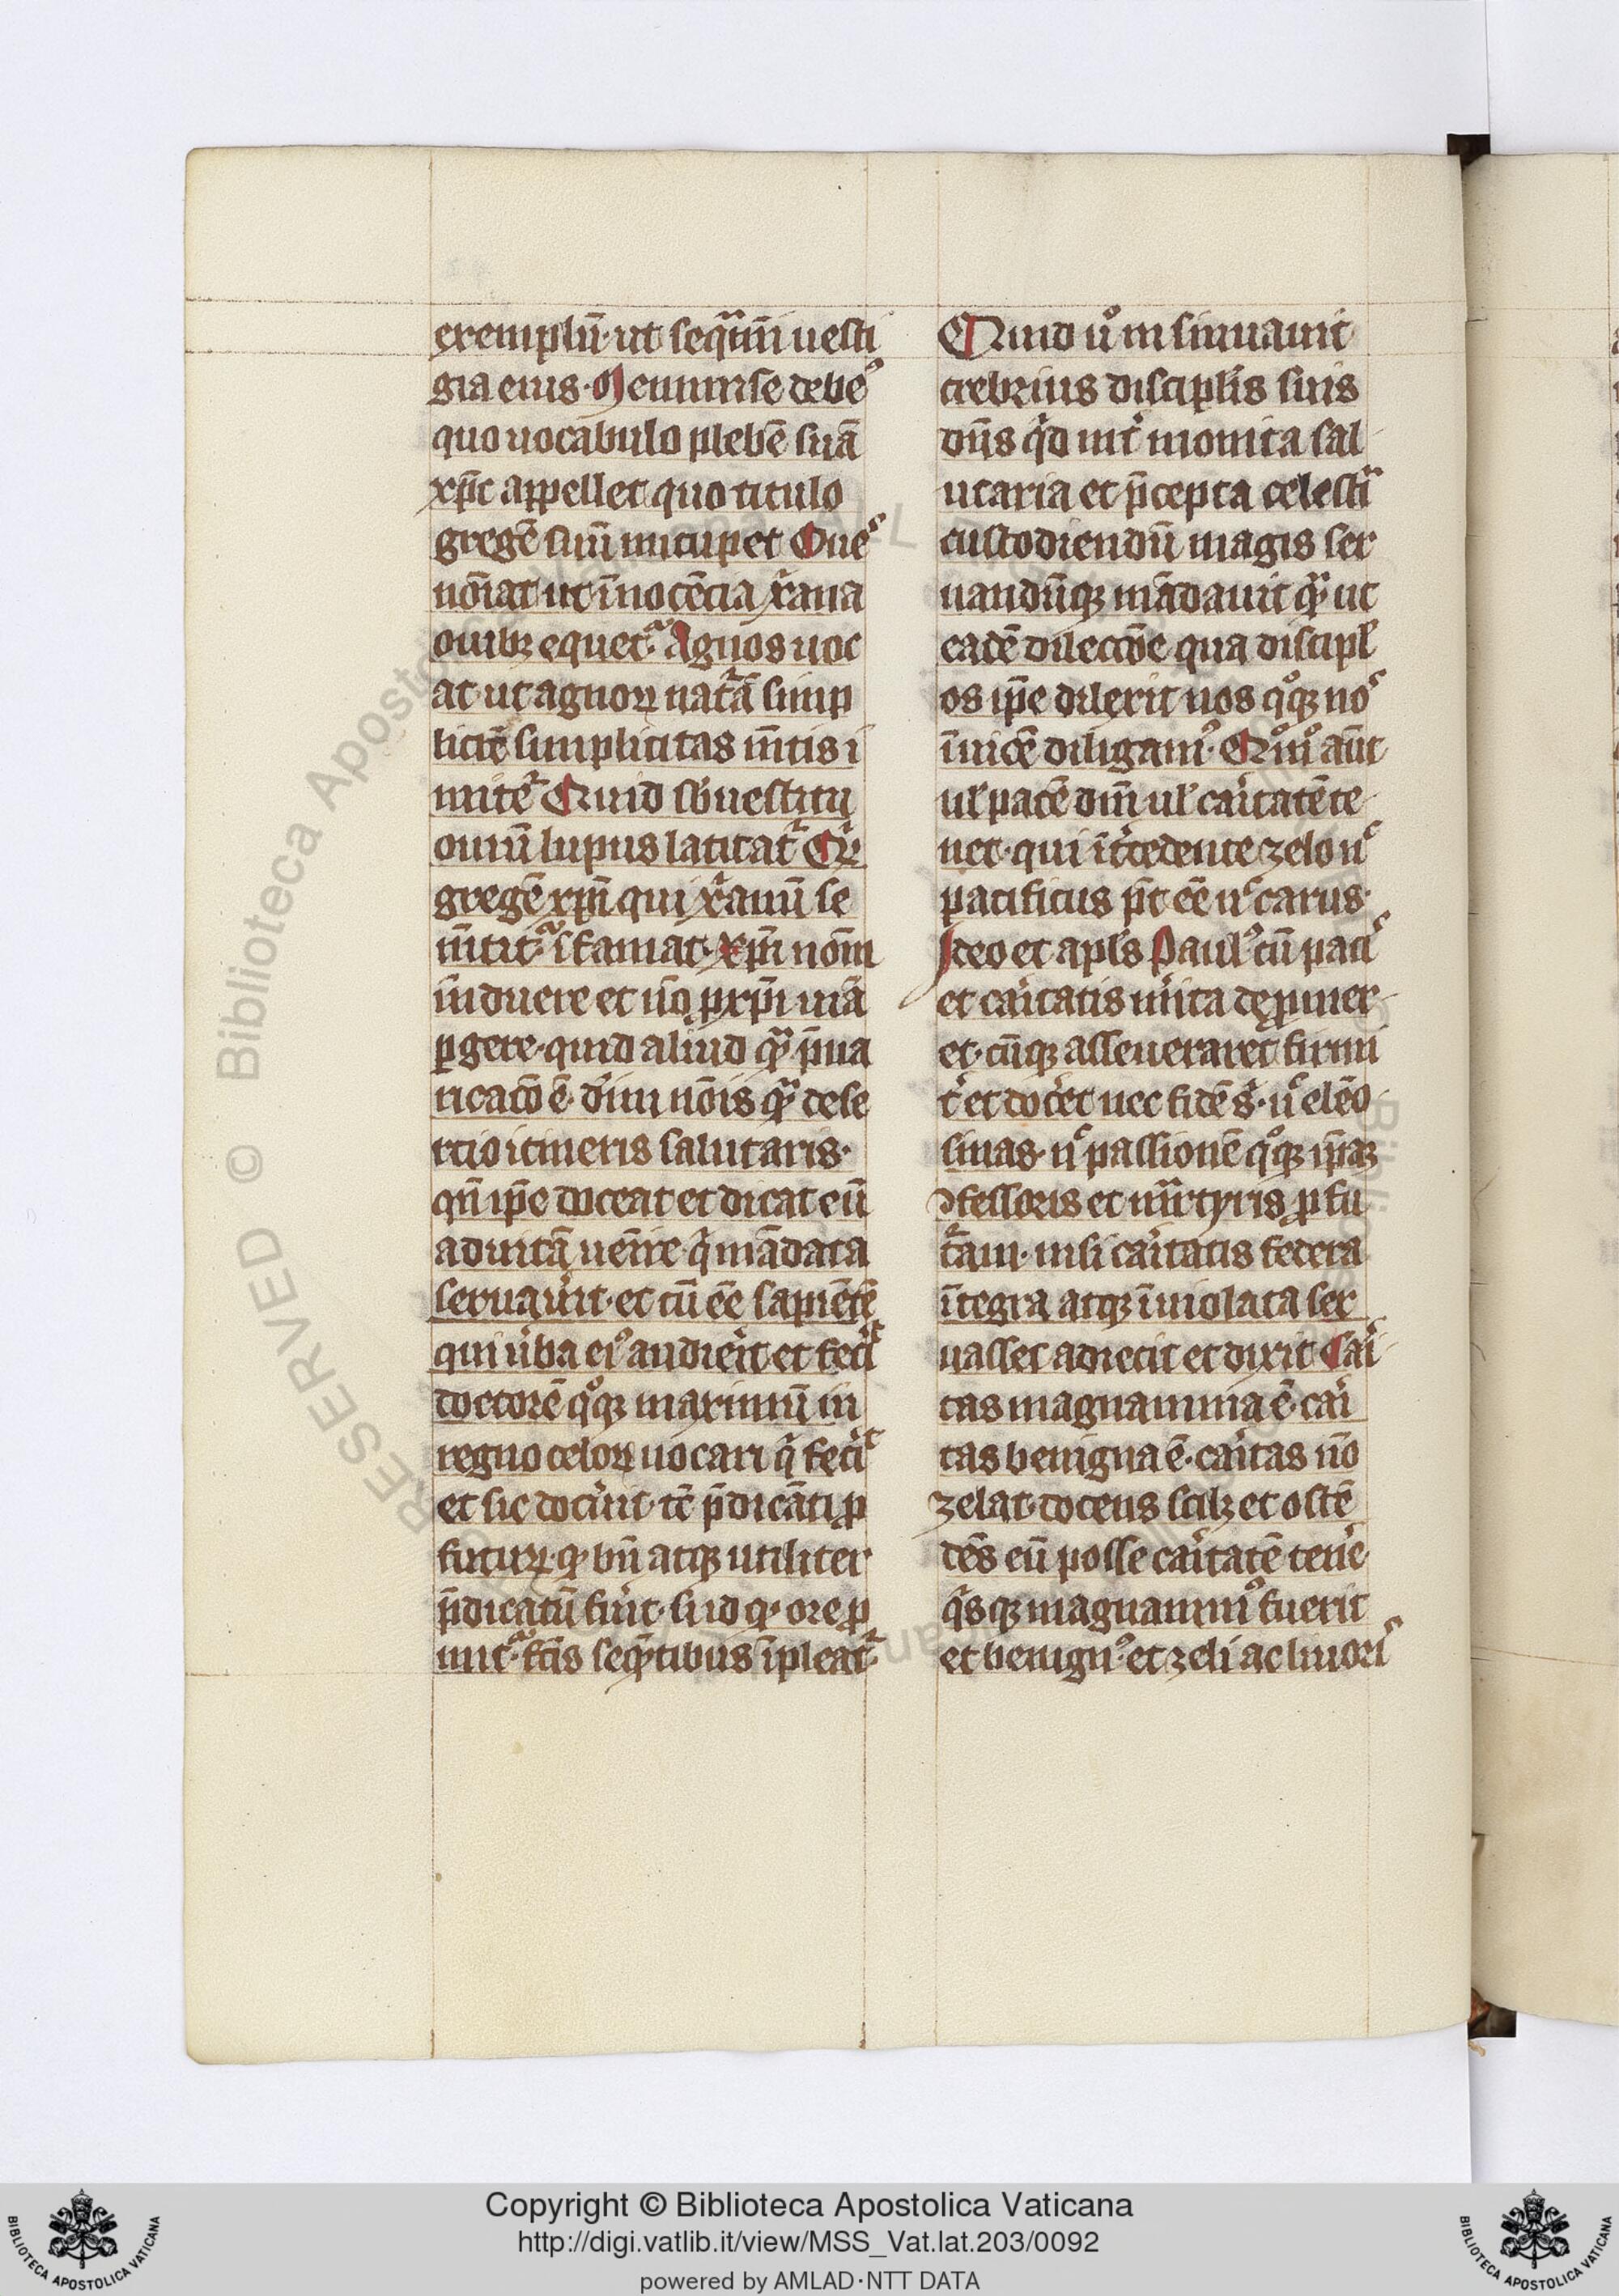 exemplū· ut seqᵃmī uesti
gia eius· Meminisse debeꝰ
quo uocabulo plebē suā
xp̄c appellet quo titulo
gregē suū nūcupet Oueˢ
nōīat ut īnocēcia xr̄ana
ouibꝫ equetᷣ· Agnos uoc
at ut agnoꝝ natᷣā simp
licitē simplicitas mētis i
mitetᷣ Quid sb̄ uestitu
ouiū lupus latitatᷣ Cᷣ
gregē xp̄ī qui xr̄anū se
mētitᷣ īfamat· Xp̄ī nom̄
induere et nō ꝑ xp̄ī uiā
ꝑgere· quid aliud qᷓ p̄ua
ricacō ē· dīuī nōīs qᷓ dese
rcio itineris salutaris·
qn̄ ip̄e doceat et dicat eū
ad uitā uēīre qⁱ mādata
seruauⁱit· et eū eē sapiētē
qui u̓ba eiꝰ audieⁱit et fecⁱt
doctorē qͦqꝫ maximū in
regno celoꝝ uocari qⁱ fecⁱt
et sic docuⁱit· tc̄ p̄dicāti ꝓ
futuꝝ· qꝫ bn̄ atqꝫ utiliter
p̄dicatū fuⁱit· si id qꝫ ore ꝓ
mitᷣ· fc̄is seqꝫtibus īpleatᷣ·
Quid uͦ insinuauit
crebrius discipl̄is suis
dn̄s qⁱd int̓ monita sal
utaria et p̄cepta celestiᵃ
custodiendū magis ser
uandūqꝫ mādauit qᷓ ut
eadē dileccōe qua discipl̄
os ip̄e dilexit nos qͦqꝫ noˢ
īuicē diligamꝰ· Qͦmͦ aūt
ul̄ pacē dn̄ī ul̄ caⁱtatē te
net· qui īt̓cedente zelo nᶜ
pacificus p̄t eē nᶜ carus·
Ideo et apl̄s Paulꝰ cū paciˢ
et caⁱtatis m̓ita dep̄mer
et· cūqꝫ asseueraret firmi
t̓ et doc̓et nec fidē sⁱ· nᶜ elēo
sinas· nᶜ passionē qͦqꝫ ip̄aꝫ
ↄfessoris et mᵃrtyris ꝓfu
tᷣam· nisi caⁱtatis federa
īntegra atqꝫ īuiolata ser
uasset adiecit et dixit Caⁱ
tas magnanima ē· caⁱ
tas benigna ē· caⁱtas nō
zelat· docens scilꝫ et ostē
dēs eū posse caⁱtatē tene
qⁱsqꝫ magnanimꝰ fuerit
et benignꝰ· et zeli ac liuoriˢ
Copyright © Biblioteca Apostolica Vaticana
http://digi.vatlib.it/view/MSS_Vat.lat.203/0092
powered by AMLAD·NTT DATA
BIBLIOTECA APOSTOLICA VATICANA
BIBLIOTECA APOSTOLICA VATICANA